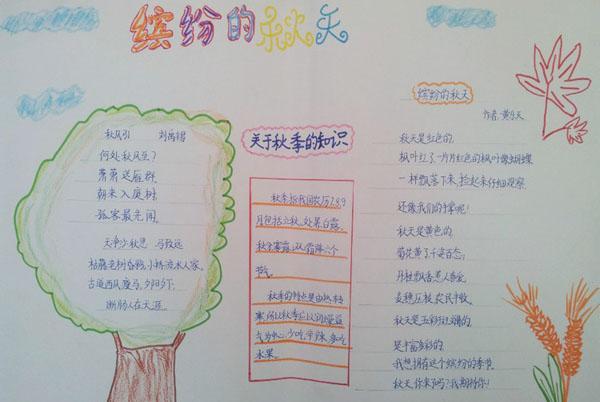 缤纷的秋天
秋风引 刘禹锡
何处秋风至?
萧萧送雁群
朝来入庭树
孤客最先闻
天净沙秋思 马致远
枯藤老树昏鸦,小桥流水人家。
古道西风瘦马,夕阳西下,
断肠人在天涯
关于秋季的知识
秋季指我国农历7.8.9
月包括立秋、处暑、白露、
秋分、寒露、霜降六个
节气。
秋季的特点是由热转
气为主,少吃辛辣,多吃
水果。
缤纷的秋天
作者:黄乐天
秋天是红色的,
枫叶红了一片片红色的枫叶像蝴蝶
一样飘落下来,捡起来仔细观察
还像我们的手掌呢!
秋天是黄色的,
菊花黄了千姿百态;
丹桂飘香惹人喜爱,
麦穗压枝,农民丰收。
秋天是五彩斑斓的,
是丰富多彩的,
我想拥有这个缤纷的季节,
秋天,你来了吗?我期待你!